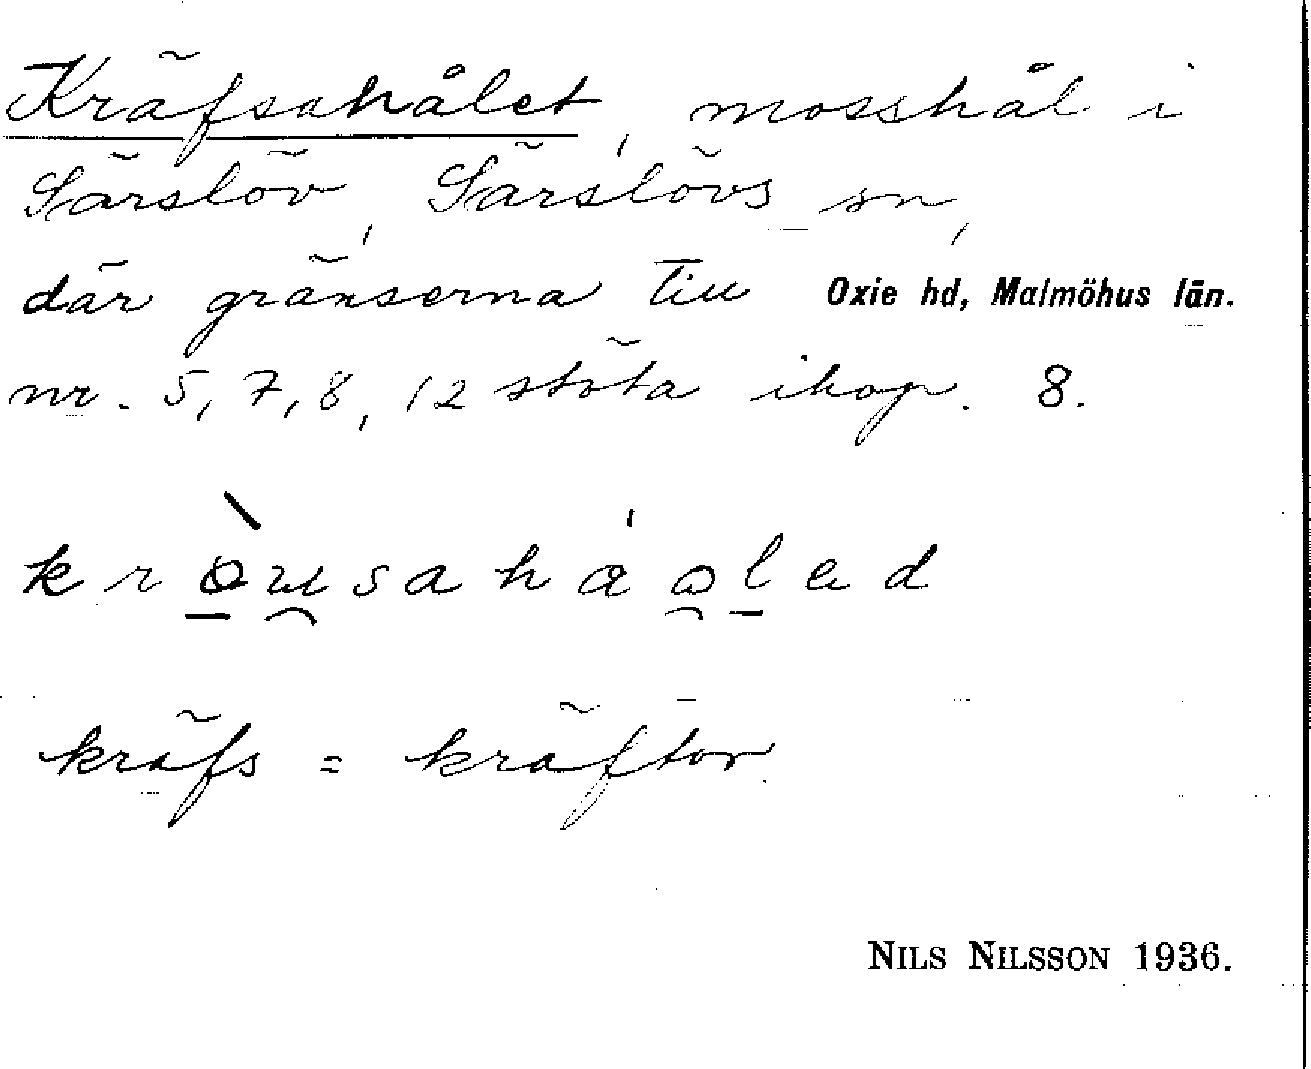 Kräfsahålet, mosshål i
Särslöv, Särslövs sn,
där gränserna till Oxie hd, Malmöhus län.
nr. 5, 7, 8, 12 stöta ihop. 8.
kräfs = kräftor
NILS NILSSON 1936.